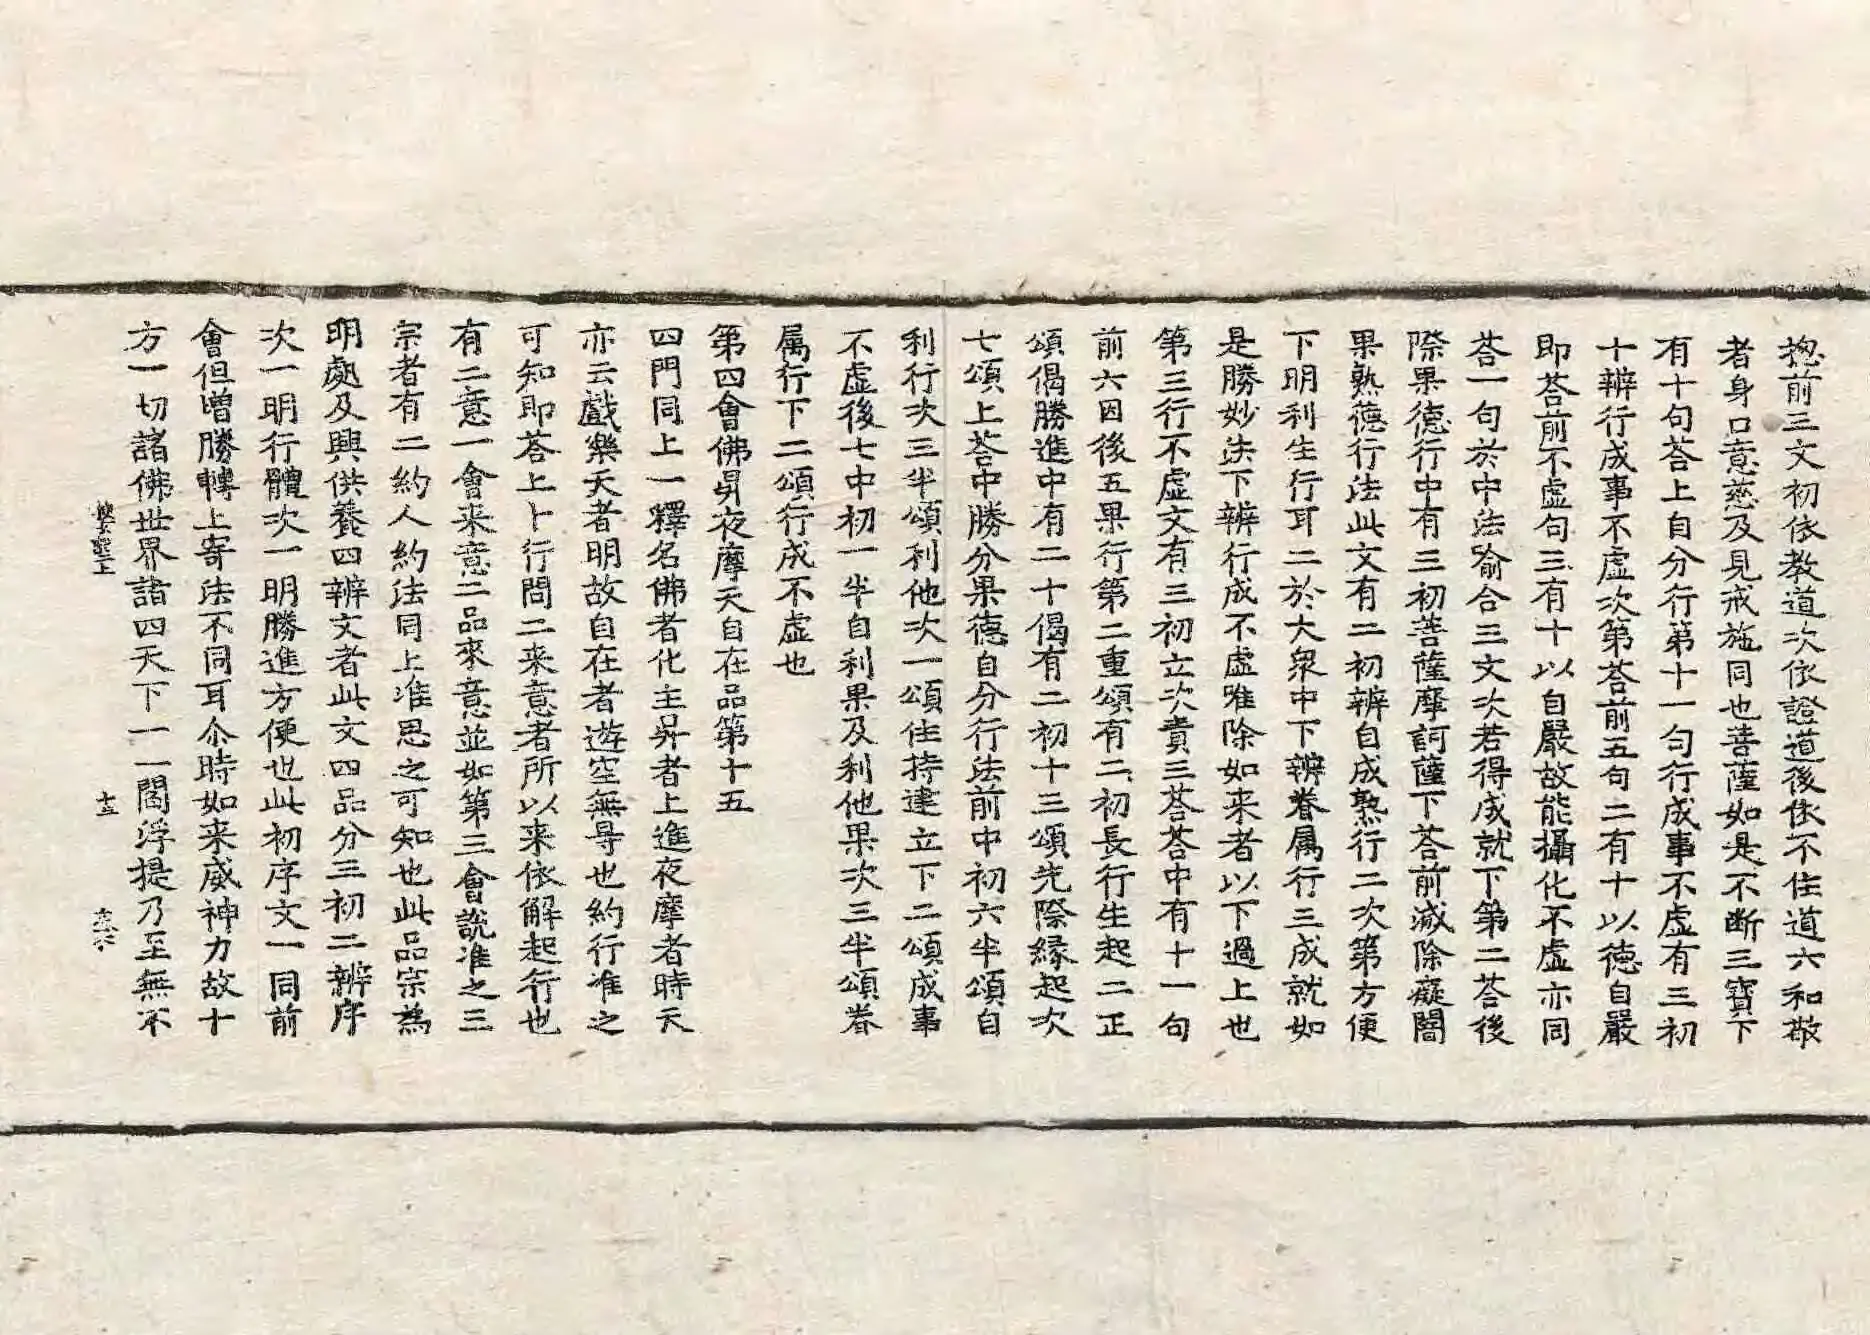 揔前三文初依教道次依證道後依不住道六和敬
者身口意慈及見戒施同也菩薩如是不断三寶下
有十句荅上自分行第十一句行成事不虛有三初
十辨行成事不虛次第荅前五句二有十以德自嚴
即荅前不虛句三有十以自嚴故能攝化不虛亦同
荅一句於中法喻合三文次若得成就下第二荅後
際果德行中有三初菩薩摩訶薩下荅前滅除癡闇
果熟德行法此文有二初辨自成熟行二次第方便
下明利生行耳二於大衆中下辨眷属行三成就如
是勝妙法下辨行成不虛唯除如来者以下過上也
第三行不虛文有三初立次責三荅荅中有十一句
前六因後五果行第二重頌有二初長行生起二正
頌偈勝進中有二十偈有二初十三頌先際縁起次
七頌上荅中勝分果德自分行法前中初六半頌自
利行次三半頌利他次一頌住持建立下二頌成事
不虛後七中初一半自利果及利他果次三半頌眷
属行下二頌行成不虛也
第四會佛昇夜摩天自在品第十五
四門同上一釋名佛者化主昇者上進夜摩者時天
亦云戲樂天者明故自在者遊空無导也約行准之
可知即荅上卜行問二来意者所以来依解起行也
有二意一會来意二品来意並如第三會説准之三
宗者有二約人約法同上准思之可知也此品宗為
明處及興供養四辨文者此文四品分三初二辨序
次一明行體次一明勝進方便也此初序文一同前
會但增勝轉上寄法不同耳尒時如来威神力故十
方一切諸佛世界諸四天下一一閻浮提乃至無不
十五